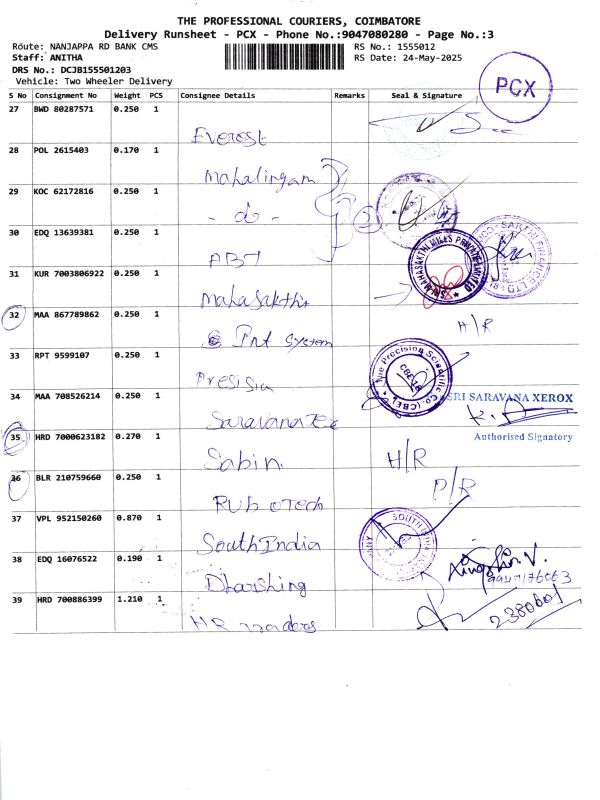 THE PROFESSIONAL COURIERS, COIMBATORE
Delivery Runsheet - PCX - Phone No.:9047080280 - Page No.:3
Route: NANJAPPA RD BANK CMS
RS No.: 1555012
Staff: ANITHA
RS Date: 24-May-2025
DRS No.: DCJB155501203
Vehicle: Two Wheeler Delivery
PCX
S No Consignment No Weight PCS Consignee Details Remarks Seal & Signature
27 BWD 80287571 0.250 1
Everest
28 POL 2615403 0.170 1
Mahalingam
29 KOC 62172816 0.250 1
- do -
30 EDQ 13639381 0.250 1
ABT
SRI MAHASAKTHI MILLS PRIVATE LIMITED
31 KUR 7003806922 0.250 1
Mahasakthi
32 MAA 867789862 0.250 1
H/R
Pnt System
33 RPT 9599107 0.250 1
The Precision Scientific Co. (CBE)
CBE-18
Presisin
34 MAA 708526214 0.250 1
SRI SARAVANA XEROX
Saravana
Authorised Signatory
35 HRD 7000623182 0.270 1
Sabin
H/R
36 BLR 210759660 0.250 1
D/R
Rub oTech
37 VPL 952150260 0.870 1
SOUTH
South India
38 EDQ 16076522 0.190 1
Dharshing
39 HRD 700886399 1.210 1
2380601
HR